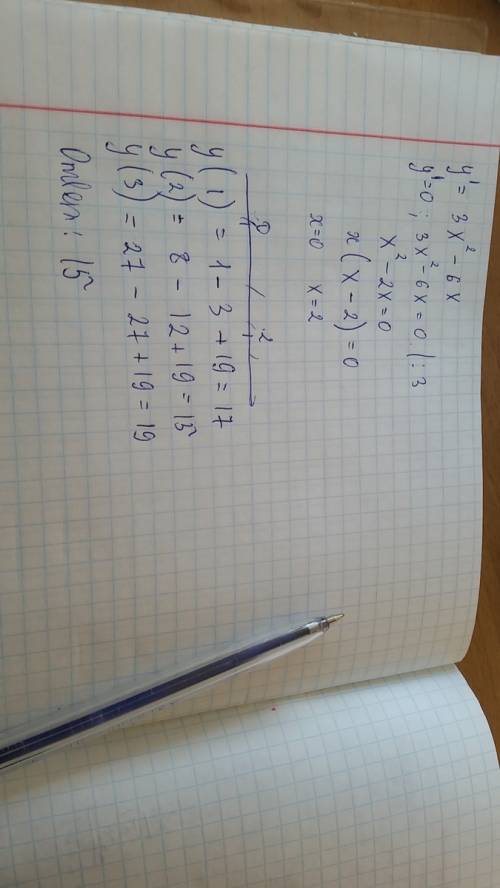 y' = 3x² - 6x
y'=0; 3x² - 6x = 0 |:3
x² - 2x = 0
x(x - 2) = 0
x=0 x = 2
0 2
y(1) = 1 - 3 + 19 = 17
y(2) = 8 - 12 + 19 = 15
y(3) = 27 - 27 + 19 = 19
Ответ: 15